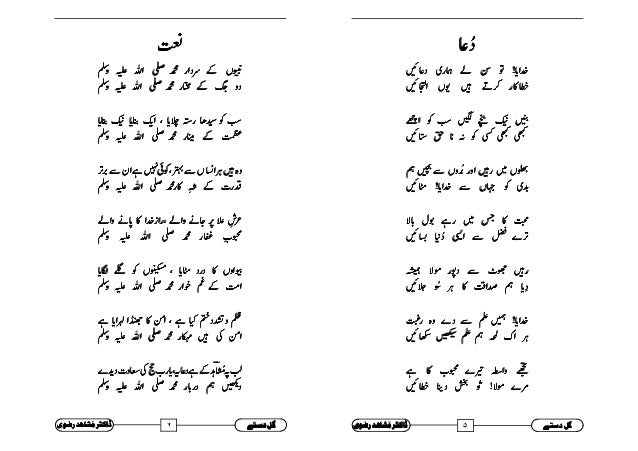 دُعا
خدایا! تو سن لے ہماری دعائیں
خطاکار کرتے ہیں یوں التجائیں
بنیں نیک بچے لگیں سب کو اچھے
کبھی بھی کسی کو نہ نا حق ستائیں
بھلوں میں رہیں اور بُروں سے بچیں ہم
بدی کو جہاں سے خدایا! مٹائیں
محبت کا جس میں رہے بول بالا
ترے فضل سے ایسی دُنیا بسائیں
رہیں جھوٹ سے دور مولا ہمیشہ
دِیا ہم صداقت کا ہر سُو جلائیں
خدایا! ہمیں علم سے دے وہ رغبت
ہر اک لمحہ ہم علم سیکھیں سکھائیں
تجھے واسطہ تیرے محبوب کا ہے
مرے مولا! تو بخش دینا خطائیں
گل دستے
۵
ڈاکٹر مُشاہد رضوی
نعت
نبیوں کے سردار محمد صلی اللہ علیہ وسلم
دو جگ کے مختار محمد صلی اللہ علیہ وسلم
سب کو سیدھا رستہ چلایا ، ایک بنایا نیک بنایا
عظمت کے مینار محمد صلی اللہ علیہ وسلم
وہ ہیں ہر انساں سے بہتر ، کوئی نہیں ہے ان سے برتر
قدرت کے شہ کار محمد صلی اللہ علیہ وسلم
عرشِ علا پر جانے والے ، رازِ خدا کا پانے والے
محبوبِ غفار محمد صلی اللہ علیہ وسلم
بیواوں کا درد مٹایا ، مسکینوں کو گلے لگایا
امت کے غم خوار محمد صلی اللہ علیہ وسلم
ظلم و تشدد ختم کیا ہے ، امن کا جھنڈا لہرایا ہے
امن کی ہیں مہکار محمد صلی اللہ علیہ وسلم
لب پہ مُشاہدؔ کے ہے دعا یہ یارب حج کی سعادت دیدے
دیکھیں ہم دربار محمد صلی اللہ علیہ وسلم
گل دستے
۶
ڈاکٹر مُشاہد رضوی